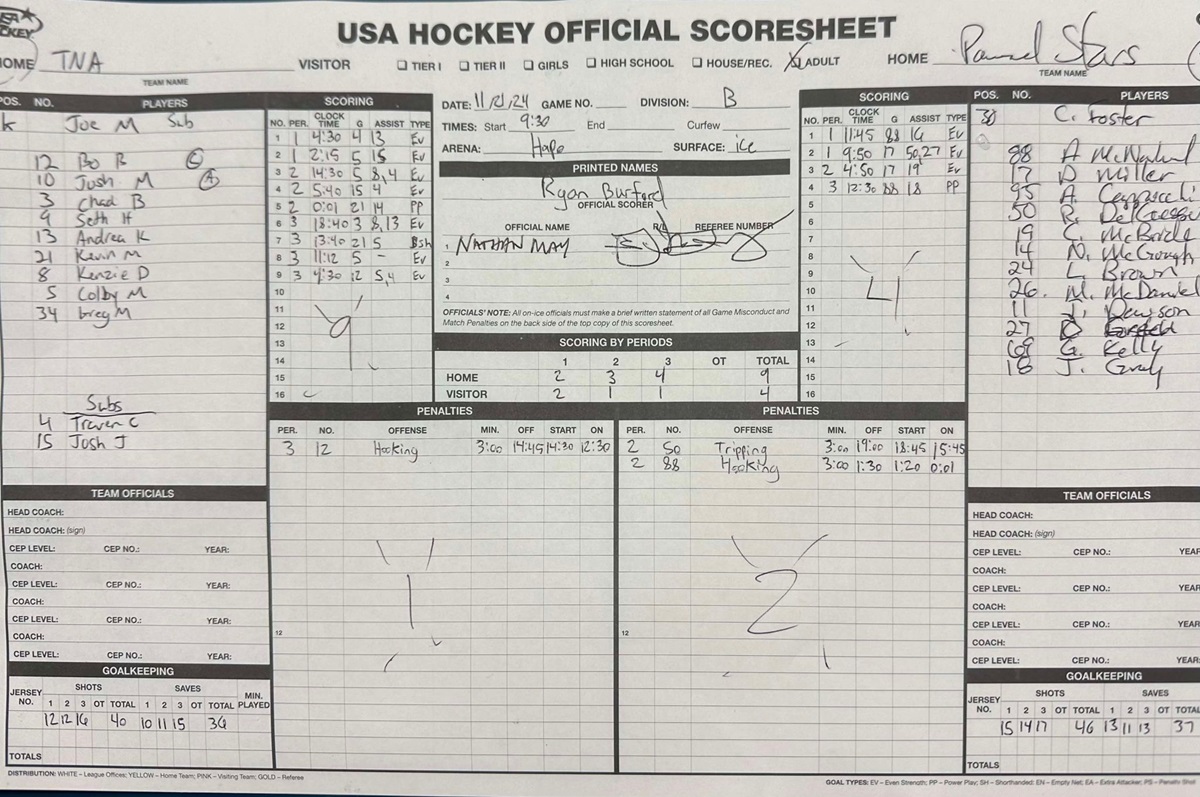 USA HOCKEY OFFICIAL SCORESHEET
HOME TNA VISITOR TIER I TIER II GIRLS HIGH SCHOOL HOUSE/REC. X ADULT HOME Stars
TEAM NAME TEAM NAME
POS. NO. PLAYERS
k Joe M Sub
12 Bo B C
10 Josh M A
3 Chad B
9 Seth H
13 Andrea K
21 Kevin M
8 Kenzie D
5 Colby M
34 Greg M
Subs
4 Traven C
15 Josh J
SCORING
NO. PER. CLOCK TIME G ASSIST TYPE
1 1 4:30 4 13 Ev
2 1 2:15 5 15 Ev
3 2 14:30 5 8,4 Ev
4 2 5:40 15 4 Ev
5 2 0:01 21 14 PP
6 3 18:40 3 8,13 Ev
7 3 13:40 21 5 Bsh
8 3 11:12 5 - Ev
9 3 4:30 12 5,4 Ev
10
11
12
13
14
15
16
9
DATE: 11/21/24 GAME NO. DIVISION: B
TIMES: Start 9:30 End Curfew
ARENA: Hope SURFACE: ice
PRINTED NAMES
Ryan Burford
OFFICIAL SCORER
OFFICIAL NAME R/L REFEREE NUMBER
1 NATHAN MAY
2
3
4
OFFICIALS' NOTE: All on-ice officials must make a brief written statement of all Game Misconduct and
Match Penalties on the back side of the top copy of this scoresheet.
SCORING BY PERIODS
1 2 3 OT TOTAL
HOME 2 3 4 9
VISITOR 2 1 1 4
SCORING
NO. PER. CLOCK TIME G ASSIST TYPE
1 1 11:45 88 16 Ev
2 1 9:50 17 50,27 Ev
3 2 4:50 17 19 Ev
4 3 12:30 88 18 PP
5
6
7
8
9
10
11
12
13
14
15
16
4
POS. NO. PLAYERS
30 C. Foster
88 A
17 D Miller
95 A.
50 R.
19 C. McBride
14 N. McGrough
24 L. Brown
26. M. McDaniel
11 J. Dawson
27 D
69 G. Kelly
18 J. Gray
PENALTIES
PER. NO. OFFENSE MIN. OFF START ON
3 12 Hooking 3:00 14:45 14:30 12:30
12
1
PENALTIES
PER. NO. OFFENSE MIN. OFF START ON
2 50 Tripping 3:00 19:00 18:45 15:45
2 88 Hooking 3:00 1:30 1:20 0:01
12
2
TEAM OFFICIALS
HEAD COACH:
HEAD COACH: (sign)
CEP LEVEL: CEP NO.: YEAR:
COACH:
CEP LEVEL: CEP NO.: YEAR:
COACH:
CEP LEVEL: CEP NO.: YEAR:
COACH:
CEP LEVEL: CEP NO.: YEAR:
GOALKEEPING
JERSEY NO. SHOTS SAVES MIN. PLAYED
1 2 3 OT TOTAL 1 2 3 OT TOTAL
12 12 16 40 10 11 15 36
TOTALS
TEAM OFFICIALS
HEAD COACH:
HEAD COACH: (sign)
CEP LEVEL: CEP NO.: YEAR
COACH:
CEP LEVEL: CEP NO.: YEAR
COACH:
CEP LEVEL: CEP NO.: YEAR
COACH:
CEP LEVEL: CEP NO.: YEAR
GOALKEEPING
JERSEY NO. SHOTS SAVES
1 2 3 OT TOTAL 1 2 3 OT TOTAL
15 14 17 46 13 11 13 37
TOTALS
DISTRIBUTION: WHITE – League Offices; YELLOW – Home Team; PINK – Visiting Team; GOLD – Referee
GOAL TYPES: EV – Even Strength; PP – Power Play; SH – Shorthanded; EN – Empty Net; EA – Extra Attacker; PS – Penalty Shot